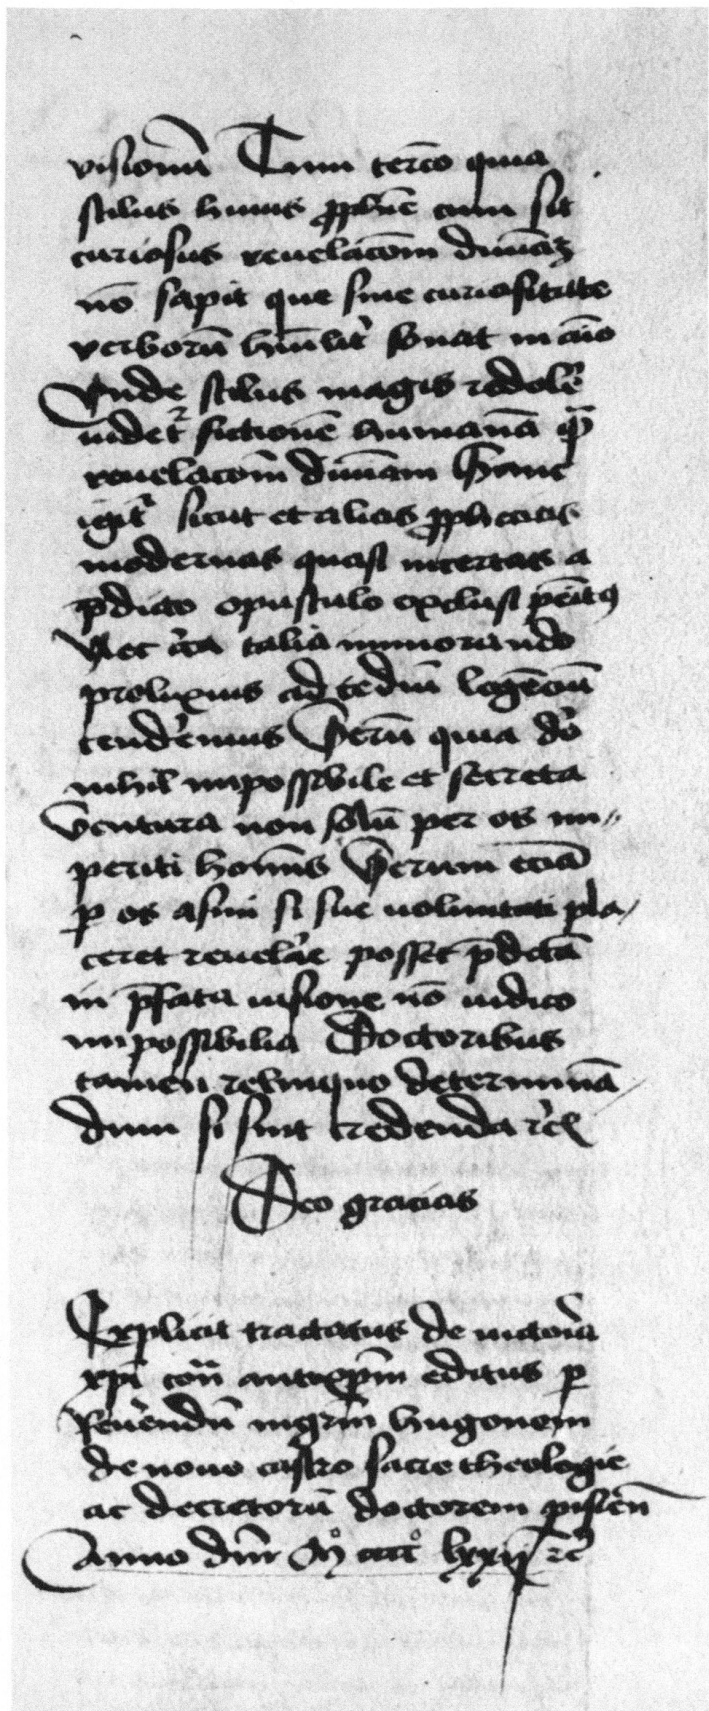 visionū Tum terco quia
stilus huius ꝓphīe cum sit
curiosus reuelacōm diuinā
nō sapit que sine curiositate
verborū hūilit̄ sonat in
Vnde stilus magis redolē
uidet̄ fictionē humanā qͣ
reuelacōm diuinam Hanc
igit̄ sicut et alias ꝓphecias
modernas quasi incertas a
p̄dicto opusculo exclusi pēitꝰ
Nec c̄ca talia immorando
prolixius ad tediū legēciū
tenderemus Verū quia dō
nihil impossibile et secreta
ventura non solū per os im-
periti hoīnis Verum eciā
ꝑ os asini si sue uoluntati pla-
ceret reuelare posset p̄dictā
in p̄fata uisione nō iudico
impossibilia Doctoribus
tamen relinquo determinā-
dum si sint credenda ꝛc̄
Deo gracias
Explicit tractatus de uictoria
xpī cont̄ antixp̄m editus ꝑ
Reuerendū mgrm̄ hugonem
de nouo castro sacre theologie
ac decretorū doctorem
Anno dm̄ Mͦ ccccͦ lxxii ꝛc̄